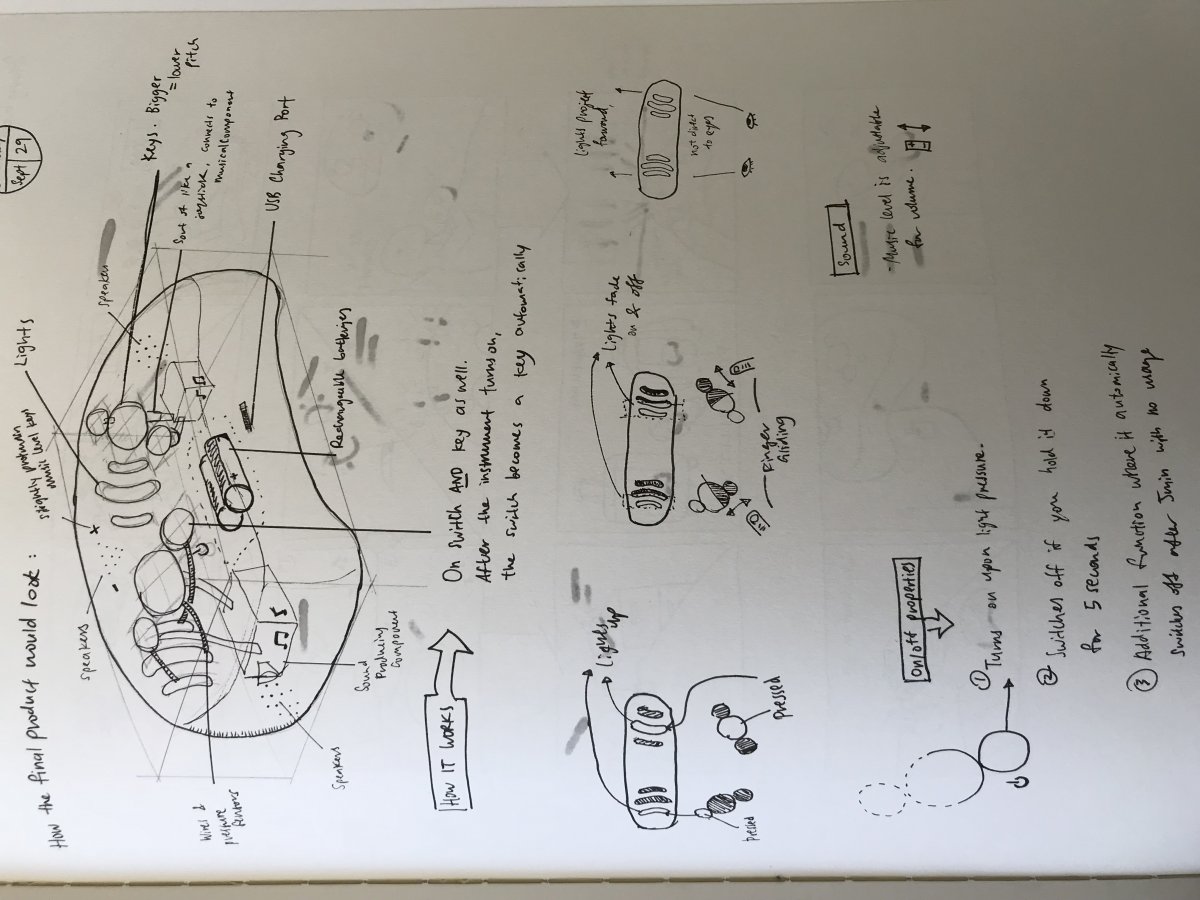 Sept 29
How the final product would look :
speakers
slightly protrudin
music level keys
Lights
speakers
Keys. Bigger
= lower
Pitch
Sort of like a
joystick, connects to
musical component
USB Charging Port
Rechargeable batteries
Wires &
pressure
sensors
Speakers
Sound
Producing
Component
HOW IT WORKS
On switch AND key as well.
After the instrument turns on,
the switch becomes a key automatically
Lights
up
pressed
Pressed
Lights fade
on & off
Finger
Gliding
Lights project
forward,
not direct
to eyes
On/off properties
① Turns on upon light pressure.
② Switches off if you hold it down
for 5 seconds
③ Additional function where it automically
switches off after 5min with no usage
Sound
- Music level is adjustable
for volume.